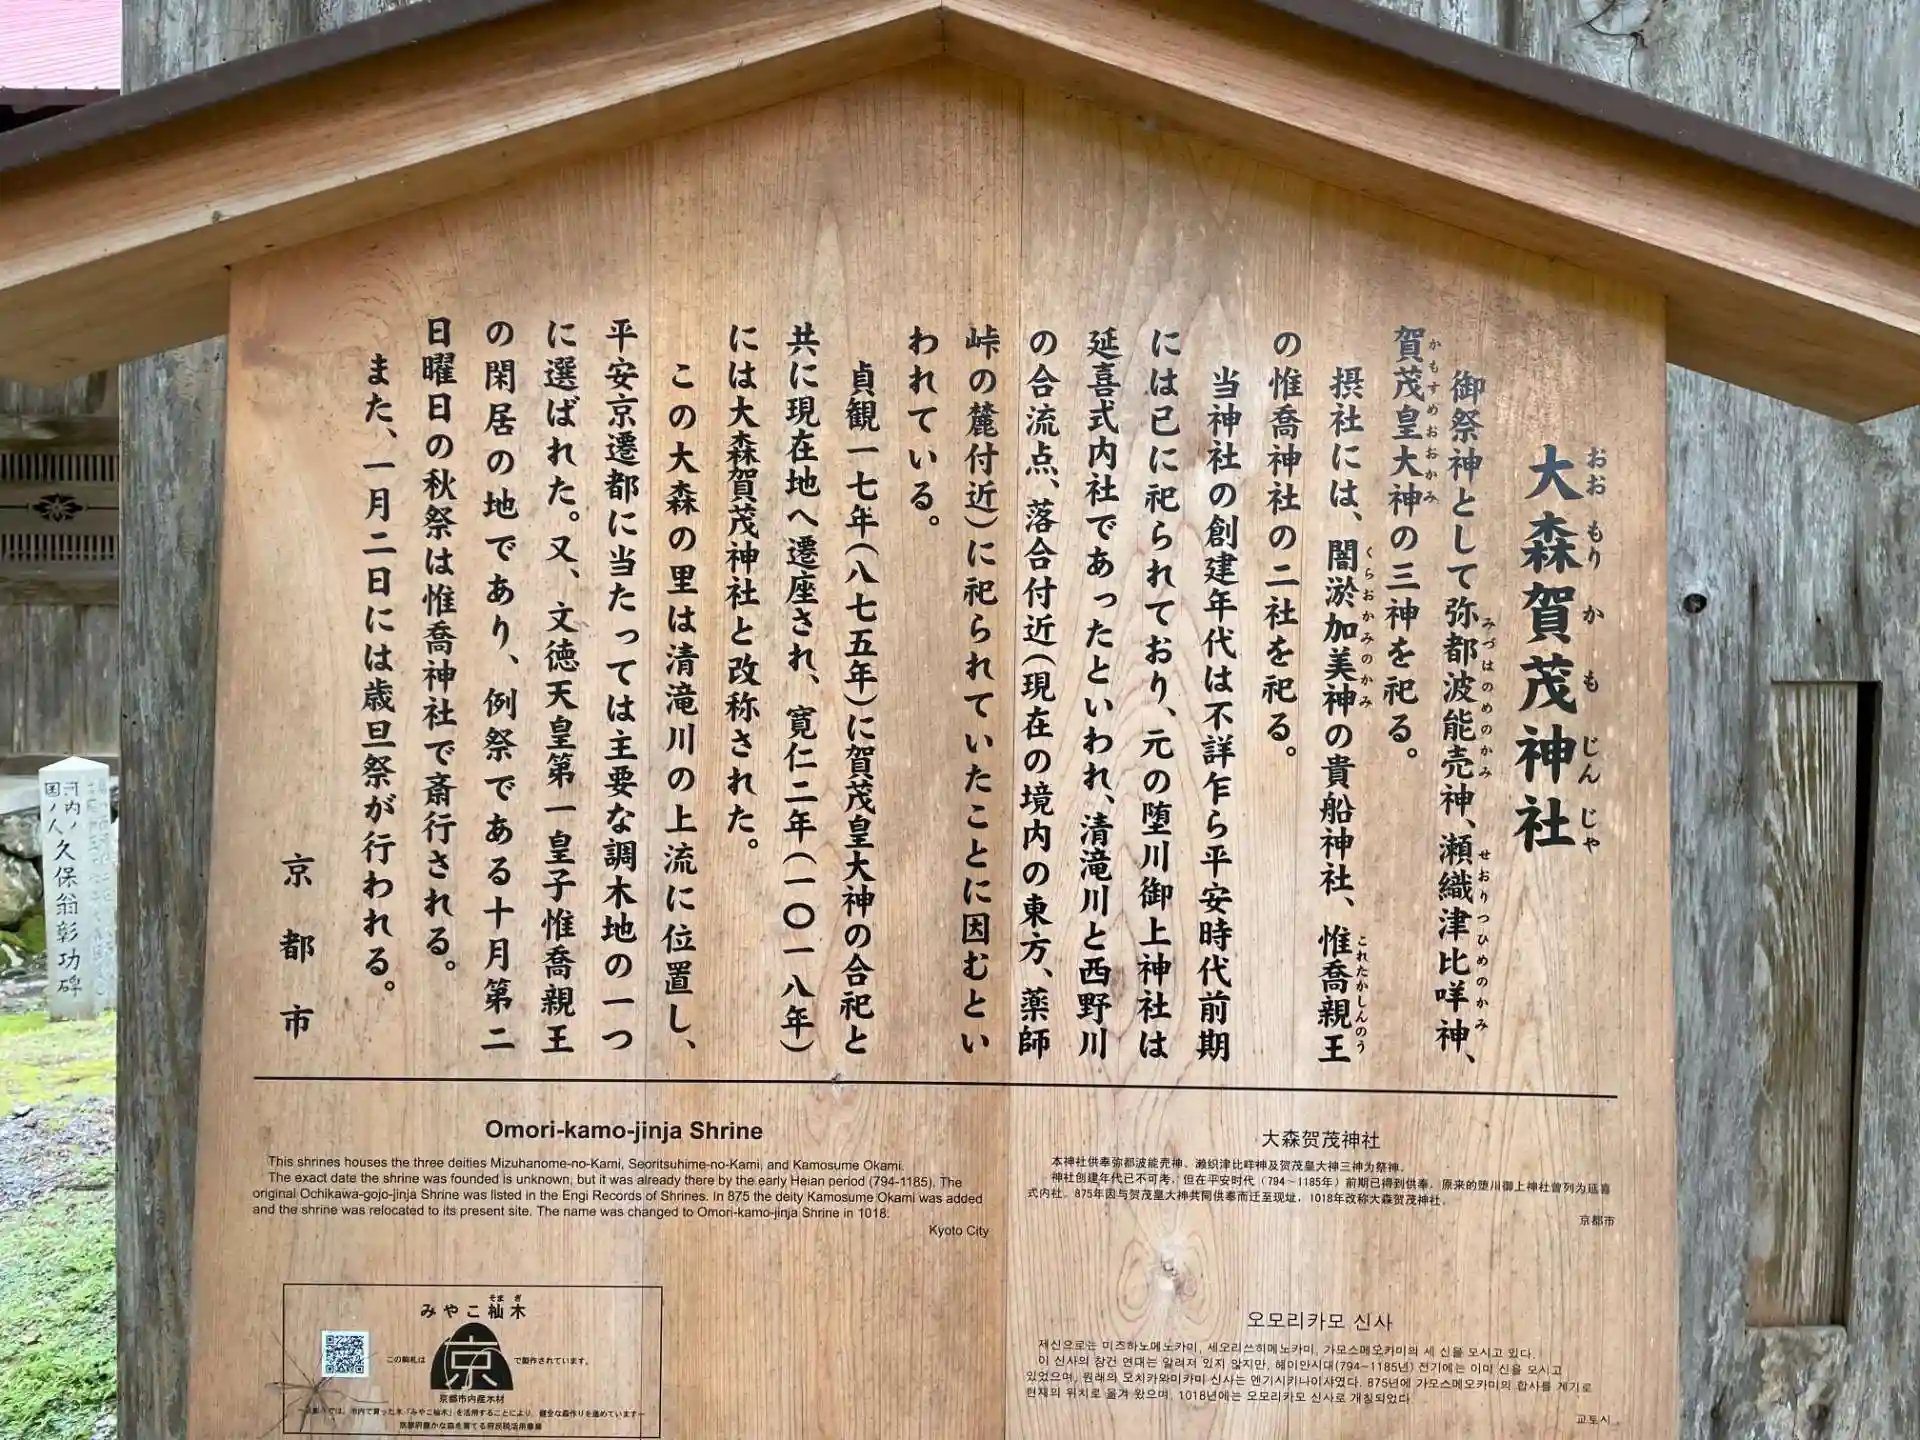 大森賀茂神社
おおもりかもじんじゃ
御祭神として弥都波能売神、瀬織津比咩神、
みづはのめのかみ
せおりつひめのかみ
賀茂皇大神の三神を祀る。
かもすめおおかみ
摂社には、闇淤加美神の貴船神社、惟喬親王
くらおかみのかみ
これたかしんのう
の惟喬神社の二社を祀る。
当神社の創建年代は不詳乍ら平安時代前期
には已に祀られており、元の堕川御上神社は
延喜式内社であったといわれ、清滝川と西野川
の合流点、落合付近(現在の境内の東方、薬師
峠の麓付近)に祀られていたことに因むとい
われている。
貞観一七年(八七五年)に賀茂皇大神の合祀と
共に現在地へ遷座され、寛仁二年(一〇一八年)
には大森賀茂神社と改称された。
この大森の里は清滝川の上流に位置し、
平安京遷都に当たっては主要な調木地の一つ
に選ばれた。又、文徳天皇第一皇子惟喬親王
の閑居の地であり、例祭である十月第二
日曜日の秋祭は惟喬神社で斎行される。
また、一月二日には歳旦祭が行われる。
京都市
Omori-kamo-jinja Shrine
This shrines houses the three deities Mizuhanome-no-Kami, Seoritsuhime-no-Kami, and Kamosume Okami.
The exact date the shrine was founded is unknown, but it was already there by the early Heian period (794-1185). The
original Ochikawa-gojo-jinja Shrine was listed in the Engi Records of Shrines. In 875 the deity Kamosume Okami was added
and the shrine was relocated to its present site. The name was changed to Omori-kamo-jinja Shrine in 1018.
Kyoto City
大森贺茂神社
本神社供奉弥都波能売神、濑织津比咩神及贺茂皇大神三神为祭神。
神社创建年代已不可考，但在平安时代（794～1185年）前期已得到供奉，原来的堕川御上神社曾列为延喜
式内社。875年因与贺茂皇大神共同供奉而迁至现址，1018年改称大森贺茂神社。
京都市
오모리카모 신사
제신으로는 미즈하노메노카미, 세오리쓰히메노카미, 가모스메오카미의 세 신을 모시고 있다.
이 신사의 창건 연대는 알려져 있지 않지만, 헤이안시대(794~1185년) 전기에는 이미 신을 모시고
있었으며, 원래의 오치카와미카미 신사는 엔기시키나이사였다. 875년에 가모스메오카미의 합사를 계기로
현재의 위치로 옮겨 왔으며, 1018년에는 오모리카모 신사로 개칭되었다.
교토시
みやこ杣木
そまぎ
この駒札は
京
で製作されています。
京都市内産木材
では、市内で育った木「みやこ杣木」を活用することにより、健全な森作りを進めています
京都府豊かな森を育てる府民税活用事業
河内ノ
国ノ人 久保翁彰功碑